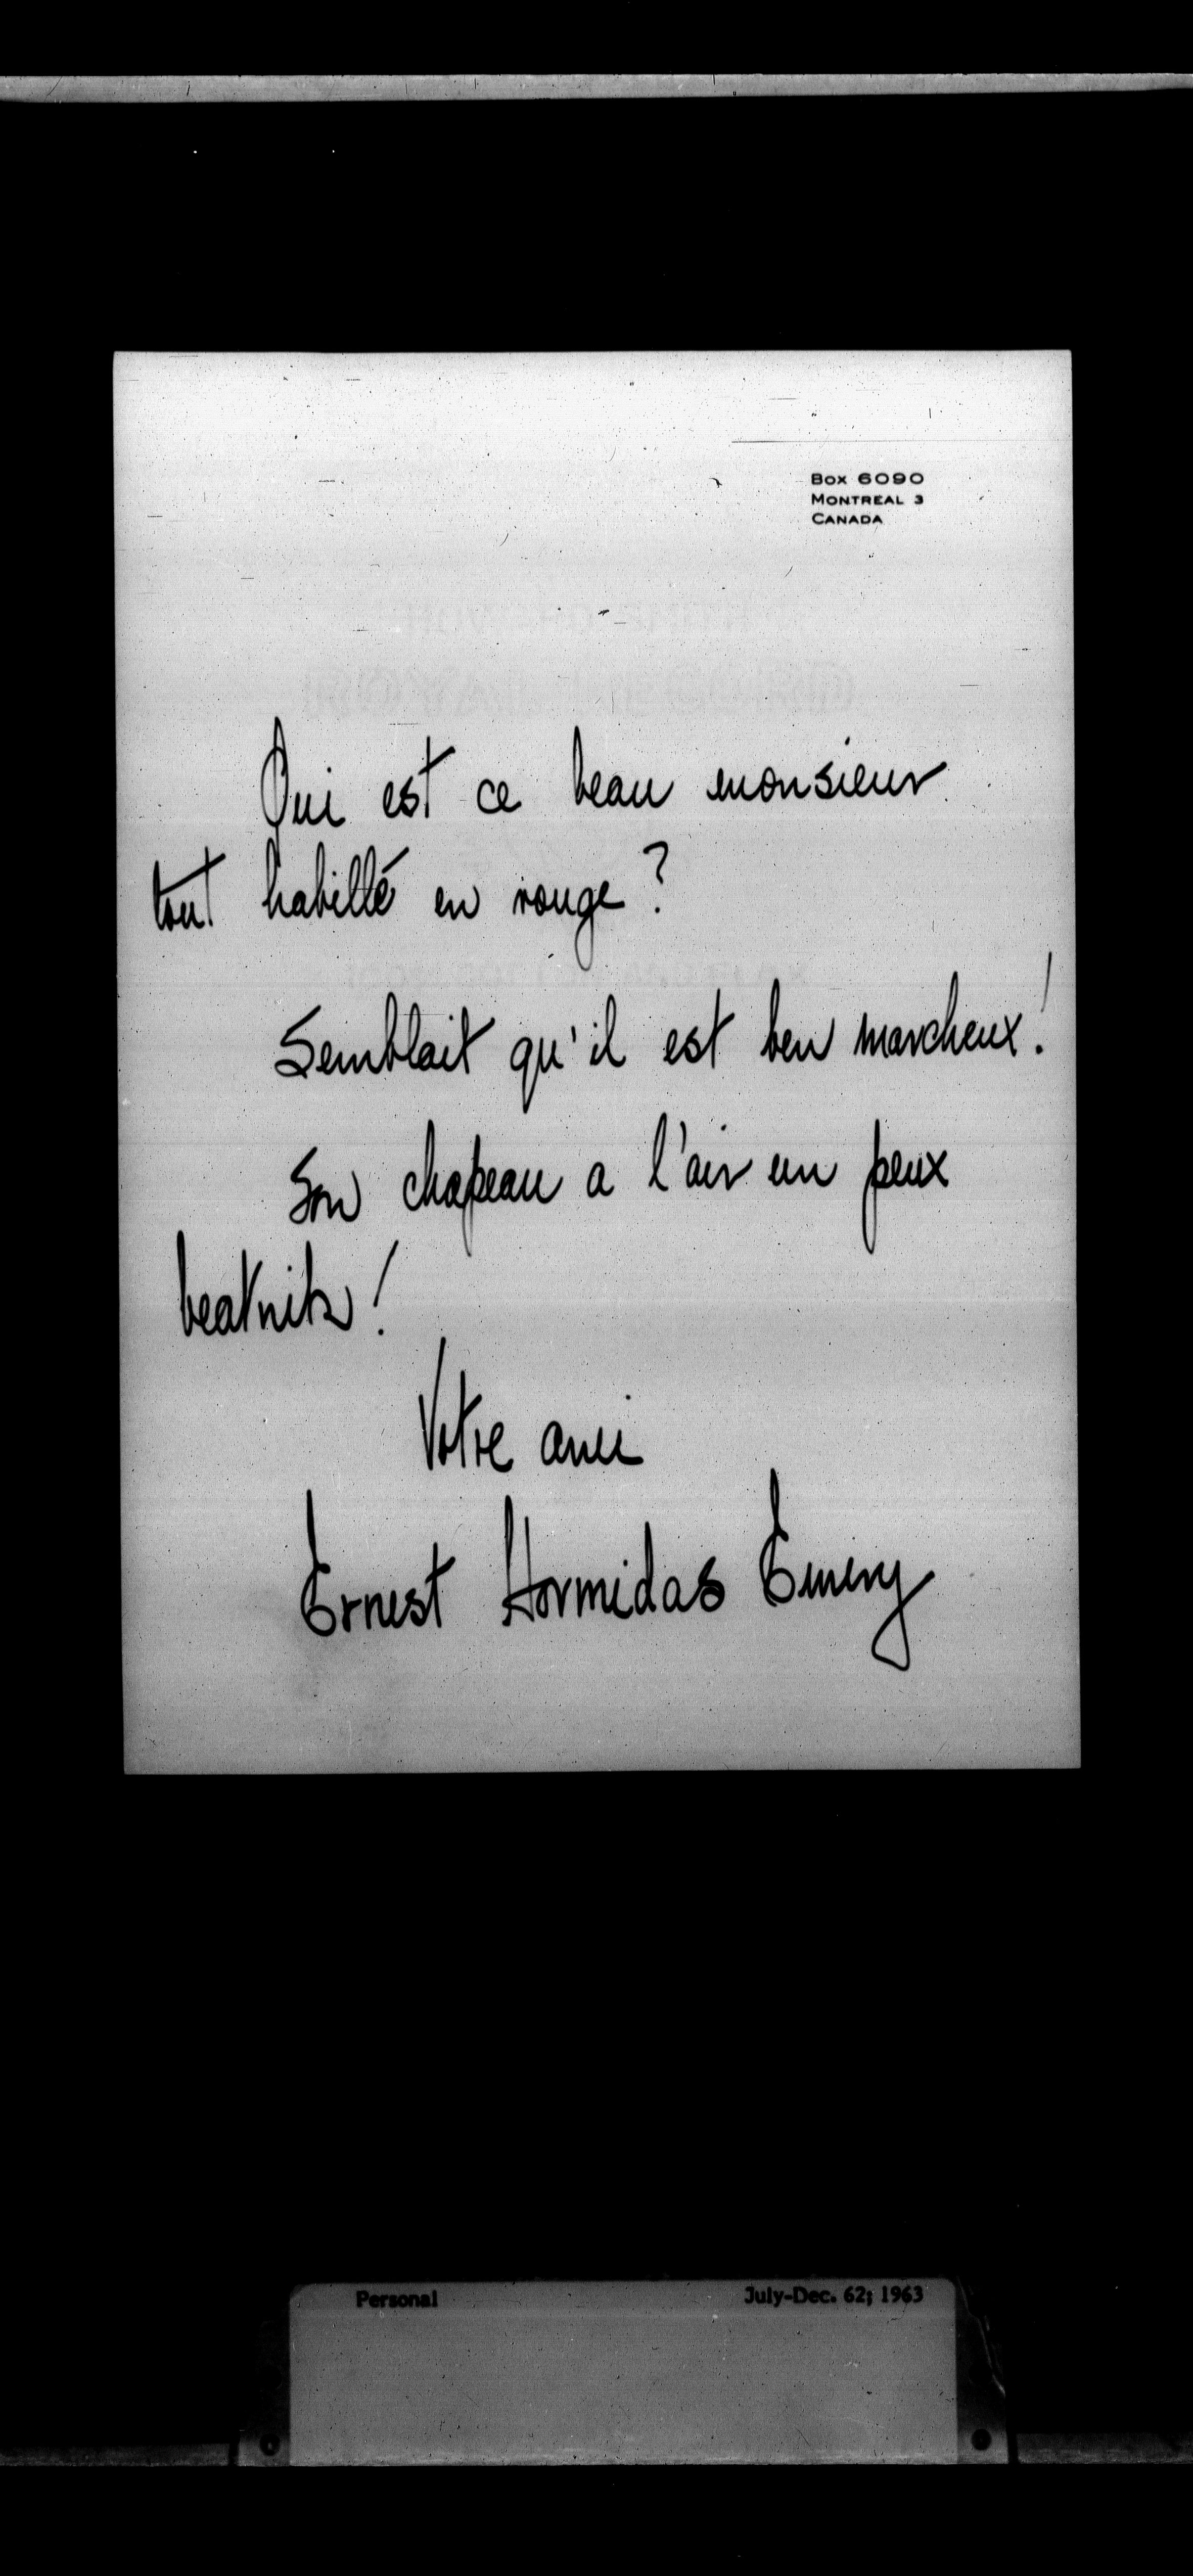 Box 6090
Montreal 3
Canada
Qui est ce beau monsieur
tout habillé en rouge?
Semblait qu'il est ben marcheux!
Son chapeau a l'air un peux
beatnik!
Votre ami
Ernest Hormidas Emery
Personal July-Dec. 62; 1963